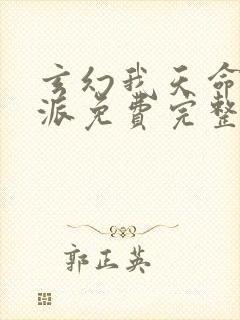 玄幻我天命
派免費完整
郭正英